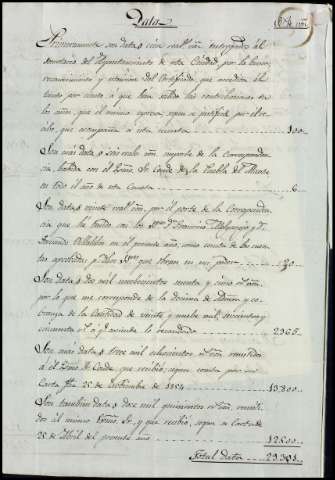 Data
Primeramente son data, cien reales vñn. entregados al
Secretario del Ayuntamiento de esta Ciudad, por la busca,
reconocimiento y examen del Certificado que acredita el
tanto por ciento a que han salido las contribuciones en
los años, que el mismo espresa, segun se justifica por el re-
cibo que acompaña a esta cuenta 100
Son mas data, seis reales vñn. importe de la Correspondencia
habida con el Exmo. Sr. Conde de la Puebla del Maestre
en todo el año de esta Cuenta 6
Son data, veinte reales vñn. por el porte de la Correspondencia
que he tenido con los Sres. Dn. Francisco y Dn.
Fernando en el presente año, como consta de las cuentas
aprobadas por dichos Sres. que obran en mi poder 20
Son data, dos mil novecientos sesenta y cinco rs. vñn.
por lo que me corresponde de la decima de Admon. y co-
branza de la Cantidad de veinte y nueve mil, seiscientos y
cincuenta rs. a q. asciende lo recaudado 2965
Son mas data, trece mil ochocientos rs. vñn. remitidos
al Exmo. Sr. Conde, que recibió, segun consta por su
Carta fha. 25 de Setiembre de 1854 13.800
Son tambien data, doce mil quinientos rs. vñn. remiti-
dos al mismo Exmo. Sr. y que recibió, segun su Carta de
25 de Abril del presente año 12.500
Total data 29.391